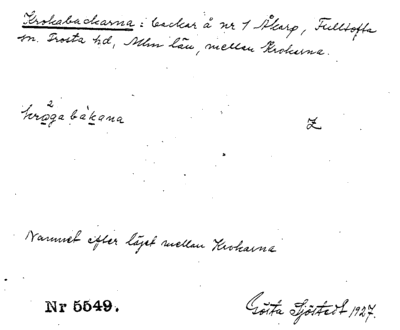 Krokabackarna: backar å nr 1 Åkarp, Fulltofta
sn. Frosta hd, Mlm län, mellan Krokarna.
2
krogabakana Z
Namnet efter läget mellan Krokarna
Nr 5549. Gösta Sjöstedt 1927.